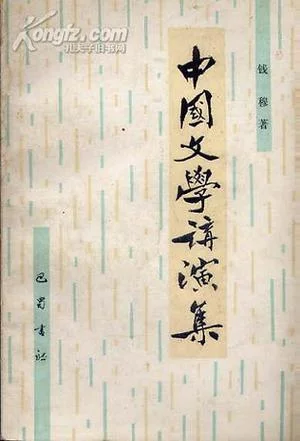 Kongfz.com
孔夫子旧书网
钱穆著
中國文學講演集
巴蜀書社